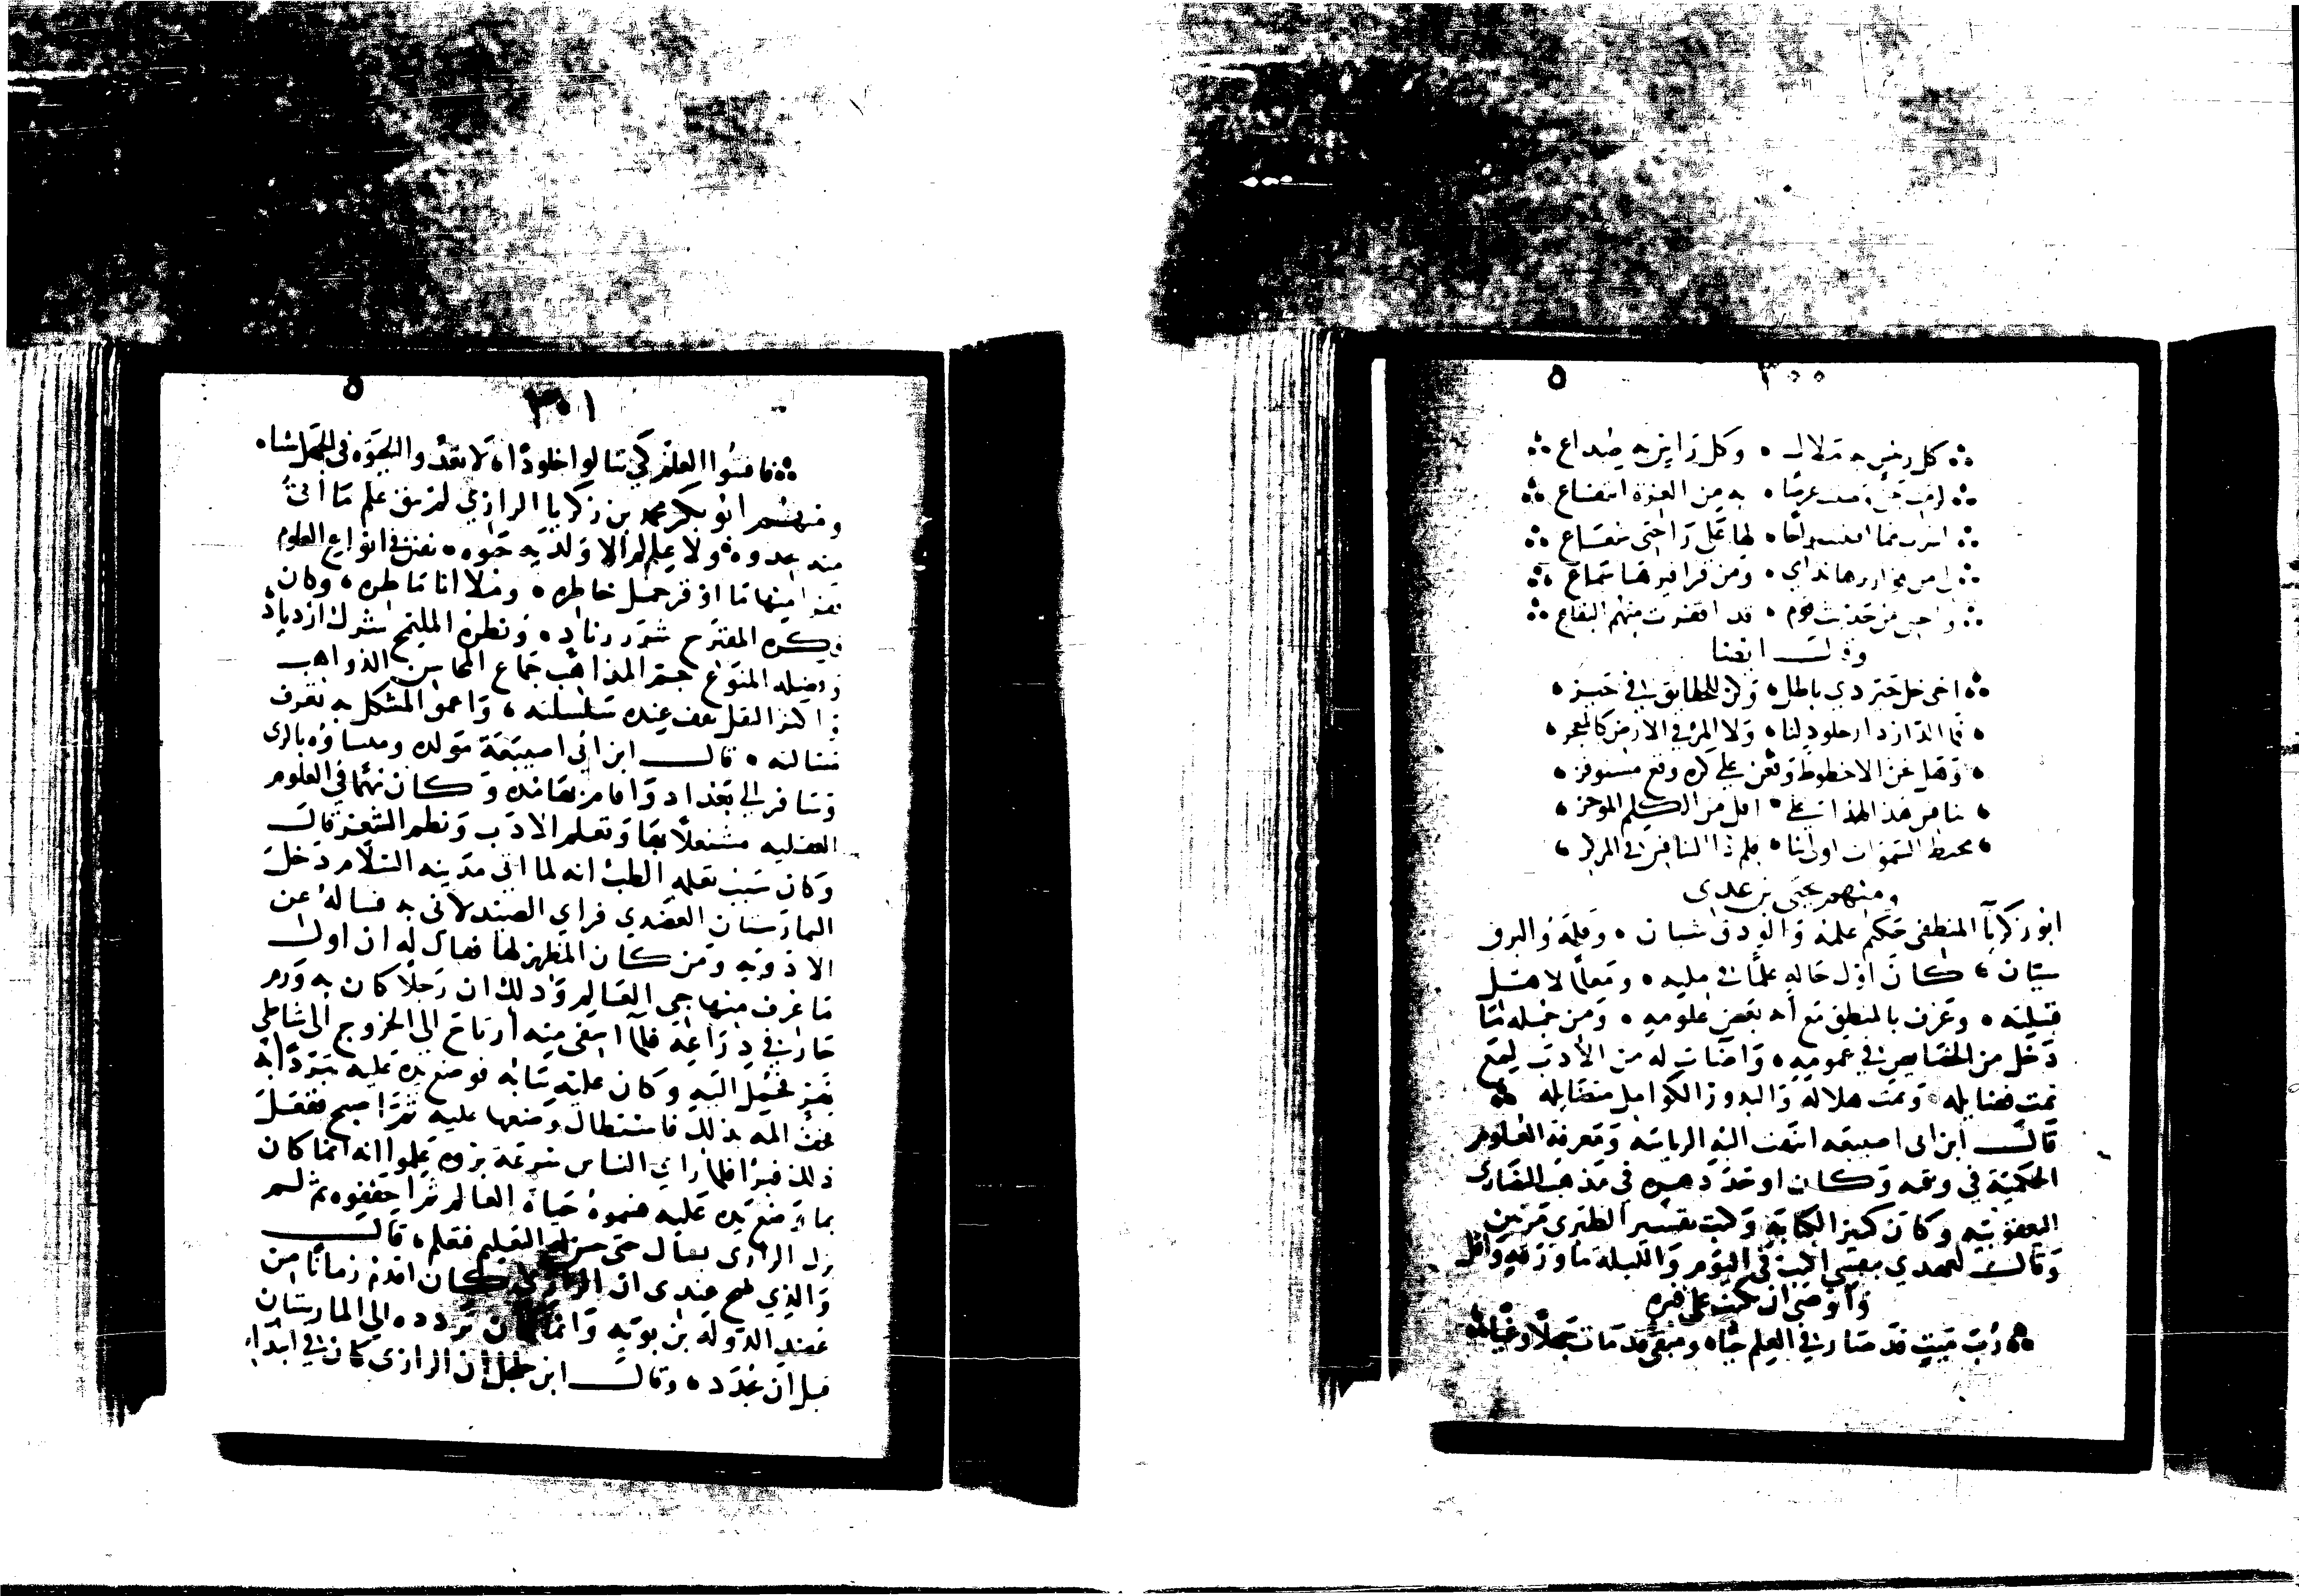 ٣٠٠
كل رئيس به ملال وكل راس به صداع
به من العزة امتناع
لها على راحتي شعاع
ومن قراقيرها سماع
واجتني من حديث قوم قد اقفرت منهم البقاع
وقال ايضا
اخي خل حيز ذي باطل وكن للحقايق في حيز
فما الدار دار خلود لنا ولا المرء في الارض كالمعجز
وهل نحن الا خطوط وقعن على كره وقع مستوفز
ينافس هذا لهذا على اقل من الكلم الموجز
محيط السموات اولى بنا فلم ذا التنافس في المركز
ومنهم يحيى بن عدي
ابو زكريا المنطقي حكم علمه والودق شيان وقلمه والبرق
سيان كان اول حاله علما في مليه ومعلما لاهل
قبيلته وعرف بالمنطق مع انه بعض علومه ومن جملة ما
دخل من الخصايص في عمومه واضات له من الادب لمع
تمت فضايله وتمت هلاله والبدور الكوامل متضايله
قال ابن ابي اصيبعه انتهت اليه الرياسه ومعرفة العلوم
الحكمية في وقته وكان اوحد دهره في مذهب النصارى
اليعقوبيه وكان كثير الكتابة وكتب تفسير الطبري مرتين
وقال لعهدي بنفسي اكتب في اليوم والليلة ماوزقه واقل
واوصى ان يكتب على قبره
رب ميت قد صار في العلم حيا ومبقى قد مات جهلا وغيا
٣٠١
فاقتنوا العلم كي تنالوا خلودا لا تعدوا الحيوة في الجهل شيا
ومنهم ابو بكر محمد بن زكريا الرازي لم يبق علم ما اتى
منه بجدوة ولا علم الا ولديه حبوه تفنن في انواع العلوم
منها ما اوقر حمل خاطره وملا انا ماطره وكان
فكره المقترح شرر زناده ونظره المليح شرك ازدياده
وفضيله المتنوع جم المذاهب جماع المحاسن الذواهب
اكثر النقل عنده سلسلته واعمق المشكل به تعرف
مسالته قال ابن ابي اصيبعة مولده ومنشاؤه بالري
وسافر الى بغداد واقام بها مده وكان نهما في العلوم
العقليه مشتغلا بها وتعلم الادب ونظم الشعر قال
وكان سبب تعلمه الطب انه لما اتى مدينه السلام دخل
البمارستان العضدي فراي الصيدلاني به فساله عن
الادويه ومن كان المظهر لها فقال له ان اول
ما عرف منها حي العالم وذلك ان رجلا كان به ورم
حار في ذراعه فلما اشفى منه ارتاح الى الخروج الى شاطي
نهر فحمل اليه وكان عليه نباته فوضع يده عليه تبردا به
فخف المه بذلك فاستطال وضعها عليه ثم اصبح ففعل
ذلك فبرا فلما راي الناس سرعة بروه علموا انه انما كان
بما وضع يده عليه فسموه حياة العالم ثم خففوه ثم لم
يزل الرازي يسال حتى التعليم فتعلم قال
والذي صح عندي ان الرازي كان اقدم زمانا من
عضد الدولة بن بويه وانما كان تردده الى المارستان
قبل ان يجدد وقال ابن جلجل ان الرازي كان في ابتداء